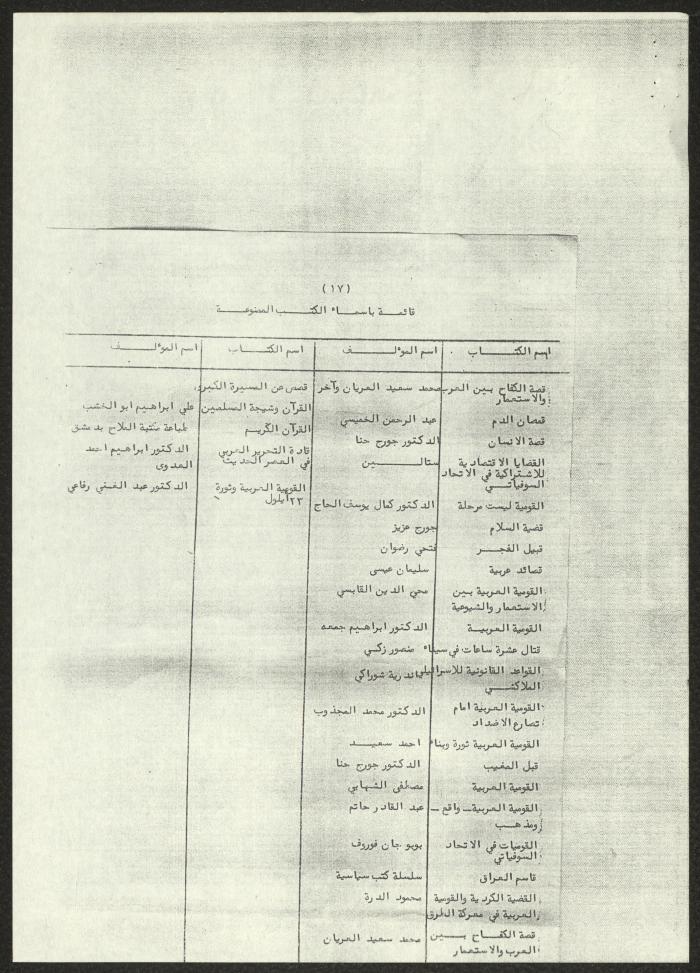 (١٧)
قائمة باسماء الكتب الممنوعة
اسم الكتاب اسم المؤلف اسم الكتاب اسم المؤلف
قصة الكفاح بين العرب محمد سعيد العريان وآخر قصص من السيرة الكبرى
والاستعمار
القرآن وشيجة المسلمين علي ابراهيم ابو الخشب
قمصان الدم عبد الرحمن الخميسي القرآن الكريم طباعة مكتبة الملاح بدمشق
قصة الانسان الدكتور جورج حنا قادة التحرير العربي الدكتور ابراهيم احمد
في العصر الحديث العدوى
القضايا الاقتصادية ستالين
للاشتراكية في الاتحاد
السوفياتي
القومية العربية وثورة الدكتور عبد الغني رفاعي
٢٣ ايلول
القومية ليست مرحلة الدكتور كمال يوسف الحاج
قضية السلام جورج عزيز
قبيل الفجر فتحي رضوان
قصائد عربية سليمان عيسى
القومية العربية بين محي الدين القابسي
الاستعمار والشيوعية
القومية العربية الدكتور ابراهيم جمعه
قتال عشرة ساعات في سيناء منصور زكي
القواعد القانونية للاسرائيلي اندرية شوراكي
الملاكي
القومية العربية امام الدكتور محمد المجذوب
تصارع الاضداد
القومية العربية ثورة وبناء احمد سعيد
قبل المغيب الدكتور جورج حنا
القومية العربية مصطفى الشهابي
القومية العربية ـ واقع ـ عبد القادر حاتم
ومذهب
القوميات في الاتحاد بوبو جان فوروف
السوفياتي
قاسم العراق سلسلة كتب سياسية
القضية الكردية والقومية محمود الدرة
العربية في معركة العراق
قصة الكفاح بين محمد سعيد العريان
العرب والاستعمار